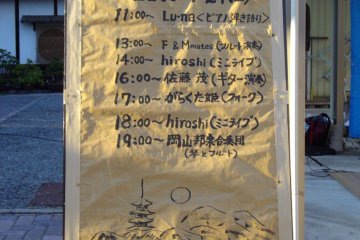 11:00～ Lu-na<ピアノ弾き語り>
13:00～ F & M mates(フルート演奏)
14:00～ hiroshi(ミニライブ)
16:00～ 佐藤 茂(ギター演奏)
17:00～がらくた姫(フォーク)
18:00～hiroshi(ミニライブ)
19:00～岡山邦楽合奏団
(琴とフルート)